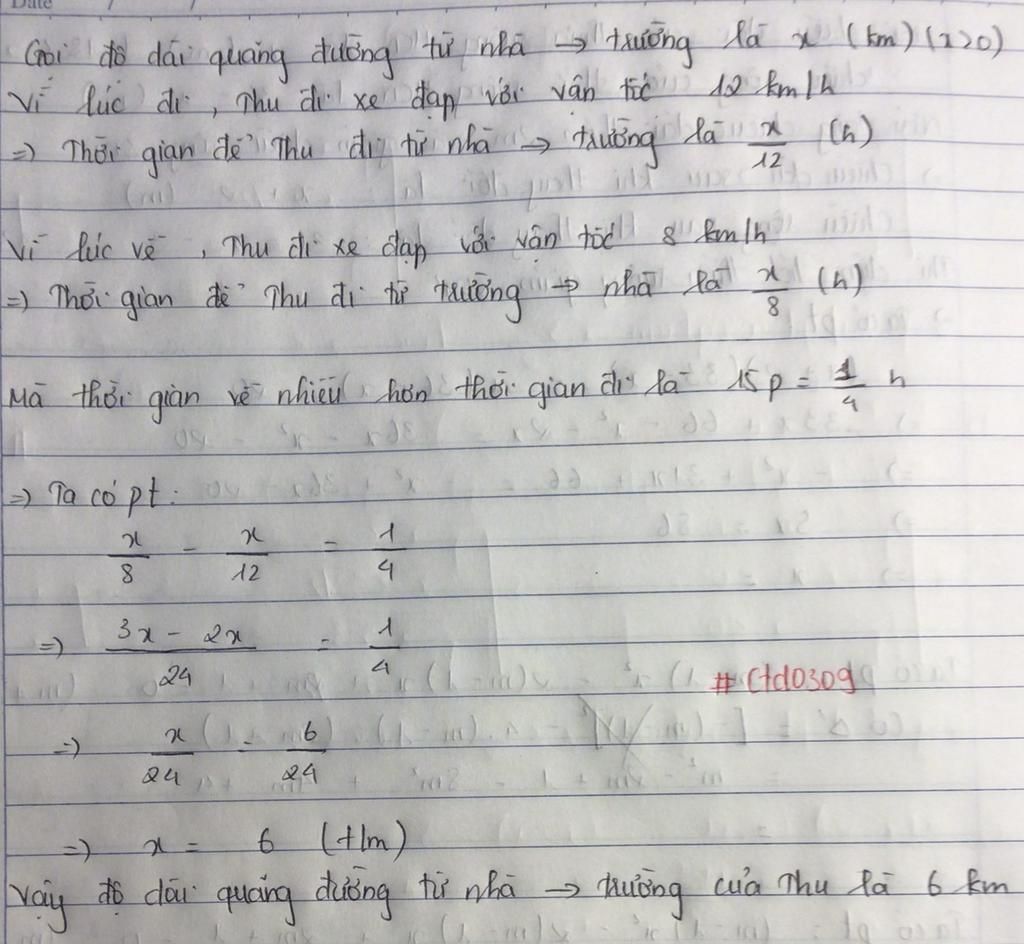 Date / /
Gọi độ dài quãng đường từ nhà → trường là x (km) (x>0)
Vì lúc đi, Thu đi xe đạp với vận tốc 12 km/h
=> Thời gian để Thu đi từ nhà → trường là x/12 (h)
Vì lúc về, Thu đi xe đạp với vận tốc 8 km/h
=> Thời gian để Thu đi từ trường → nhà là x/8 (h)
Mà thời gian về nhiều hơn thời gian đi là 15p = 1/4 h
=> Ta có pt:
x/8 - x/12 = 1/4
=> (3x - 2x)/24 = 1/4
#Ctd0309
=> x/24 = 6/24
=> x = 6 (t/m)
Vậy độ dài quãng đường từ nhà → trường của Thu là 6 km